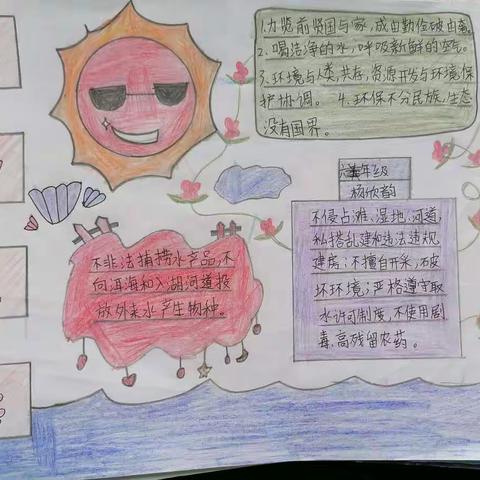 1.力览前贤国与家,成由勤俭破由奢。
2.喝洁净的水,呼吸新鲜的空气。
3.环境与人类共存,资源开发与环境保
护协调。 4.环保不分民族,生态
没有国界。
年级
杨欣韵
不侵占滩、湿地、河道,
私搭乱建和违法违规
建房;不擅自开采,破
坏环境;严格遵守取
水许可制度,不使用剧
毒、高残留农药。
不非法捕捞水产品,不
向洱海和入湖河道投
放外来水产生物种。